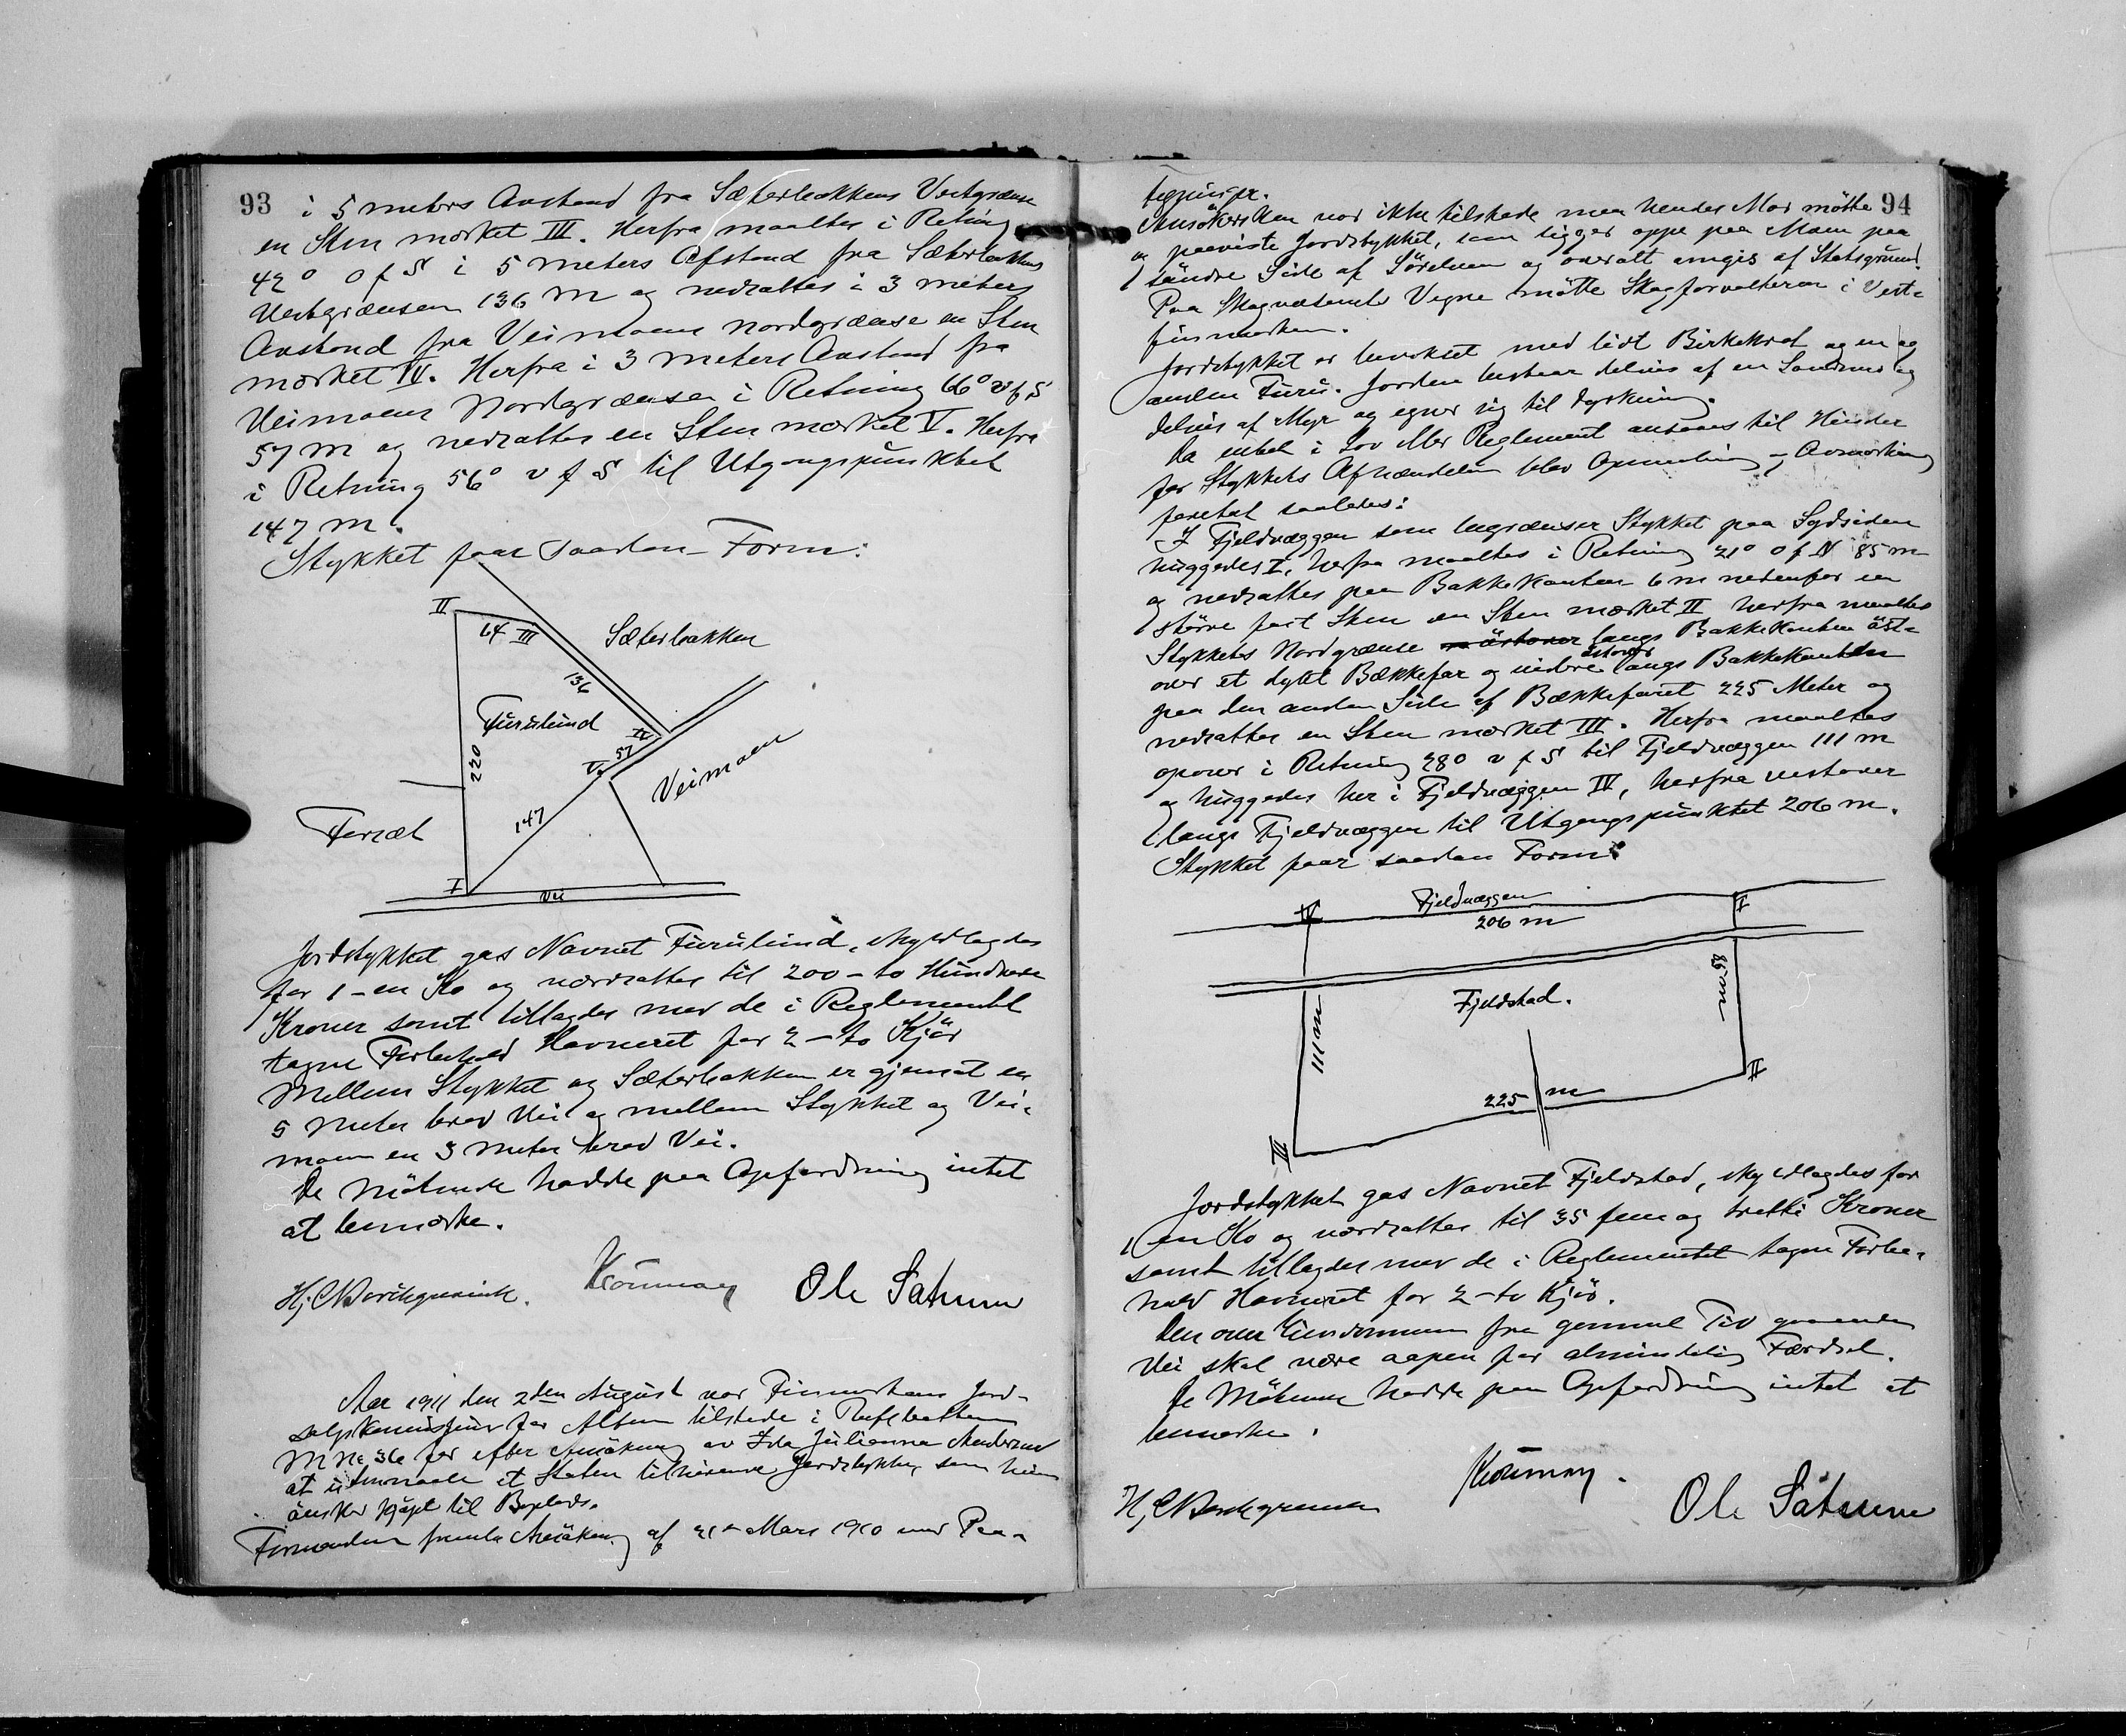 93
i 5 meters Avstand fra Sæterbakkens Vestgrænse
en Sten mærket III. Herfra maaltes i Retning
42° O f S i 5 meters Afstand fra Sæterbakkens
Vestgrænsen 136 m og nedsattes i 3 meters
Avstand fra Veimoens Nordgrænse en Sten
mærket IV. Herfra i 3 meters Avstand fra
Veimoens Nordgrænse i Retning 66° v f S
57 m og nedsattes en Sten mærket V. Herfra
i Retning 56° v f S til Utgangspunktet
147 m.
Stykket faar saadan Form:
II
64 III
Sæterbakken
136
Furulund
IV
57
V
220
Veimoen
147
Forsæt
I
Vei
Jordstykket gas Navnet Furulund, skyldlagdes
for 1 - en Ko og værdsattes til 200 - to Hundrede
Kroner samt tillagdes med de i Reglementet
tagne Forbehold Havneret for 2 - to Kjör
Mellem Stykket og Sæterbakken er gjensat en
5 Meter bred Vei og mellem Stykket og Vei-
moen en 3 Meter bred Vei.
De Mötende hadde paa Opfordring intet
at bemærke.
Ole Satrum
Aar 1911 den 2den August var Finmarkens Jord-
salgskommission for Alten tilstede i
M No 36 for efter Ansökning av Ida Julianna Andersen
at utmaale et Staten tilhörende Jordstykke, som hun
önsker kjöpt til Boplads.
Formanden fremla Ansökning af 21de Mars 1910 med Paa-
94
tegninger.
Ansökersken var ikke tilstede men hendes Mor mötte
og paaviste Jordstykket, som ligger oppe paa Moen paa
söndre Side af Sörelven og overalt omgis af Statsgrund.
Paa Skogvæsenets Vegne mötte Skogforvalteren i Vest-
finmarken.
Jordstykket er bevokset med lidt Birkekrat og en og
anden Furu. Jorden bestaar delvis af en Sandmo og
delvis af Myr og egner sig til dyrkning.
Da intet i Lov eller Reglement ansees til Hinder
for Stykkets Afhændelse blev Opmaaling og Avmerking
foretat saaledes:
I Fjeldvæggen som begrænser Stykket paa Sydsiden
huggedes I, herfra maaltes i Retning 21° O f N 85 m
og nedsattes paa Bakkekanten 6 m nedenfor en
större fast Sten en Sten mærket II herfra maaltes
Stykkets Nordgrænse östover langs Bakkekanten öst-
over et dypt Bækkefar og videre östover langs Bakkekanten
paa den anden Side af Bækkefaret 225 Meter og
nedsattes en Sten mærket III. Herfra maaltes
opover i Retning 28° v f S til Fjeldvæggen 111 m
og huggedes her i Fjeldvæggen IV, herfra vestover
langs Fjeldvæggen til Utgangspunktet 206 m.
Stykket faar saadan Form:
IV
Fjeldvæggen
206 m
I
85 m
Fjeldstad.
111 m
II
225 m
III
Jordstykket gas Navnet Fjeldstad, skyldlagdes for
1 en Ko og værdsattes til 35 fem og tretti Kroner
samt tillagdes med de i Reglementet tagne Forbe-
hold Havneret for 2 - to Kjör.
Den over Eiendommen fra gammel Tid gaaende
Vei skal være aapen for almindelig Færdsel.
De Mötende hadde paa Opfordring intet at
bemærke.
Ole Satrum